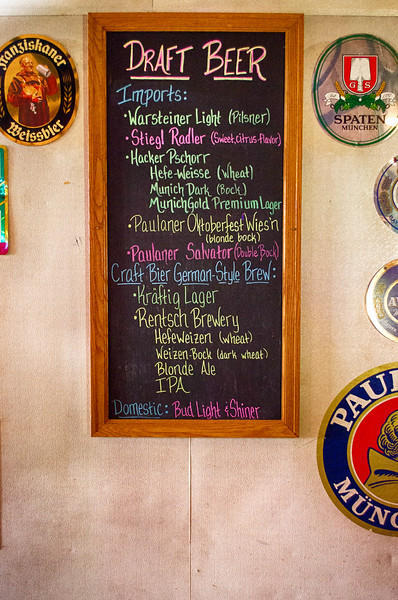 DRAFT BEER
Imports:
·Warsteiner Light (Pilsner)
·Stiegl Radler (Sweet, Citrus-flavor)
·Hacker Pschorr
Hefe-Weisse (Wheat)
Munich Dark (Bock)
Munich Gold Premium Lager
·Paulaner Oktoberfest Wies'n
(blonde bock)
·Paulaner Salvator (Double Bock)
Craft Bier German-Style Brew:
·Kräftig Lager
·Rentsch Brewery
Hefeweizen (wheat)
Weizen-Bock (dark wheat)
Blonde Ale
IPA
Domestic: Bud Light & Shiner
Franziskaner
Weissbier
G S
SPATEN
MÜNCHEN
PAUL
MÜNC